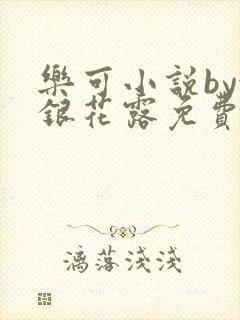 樂可小説by
銀花露免費
漓落淺淺